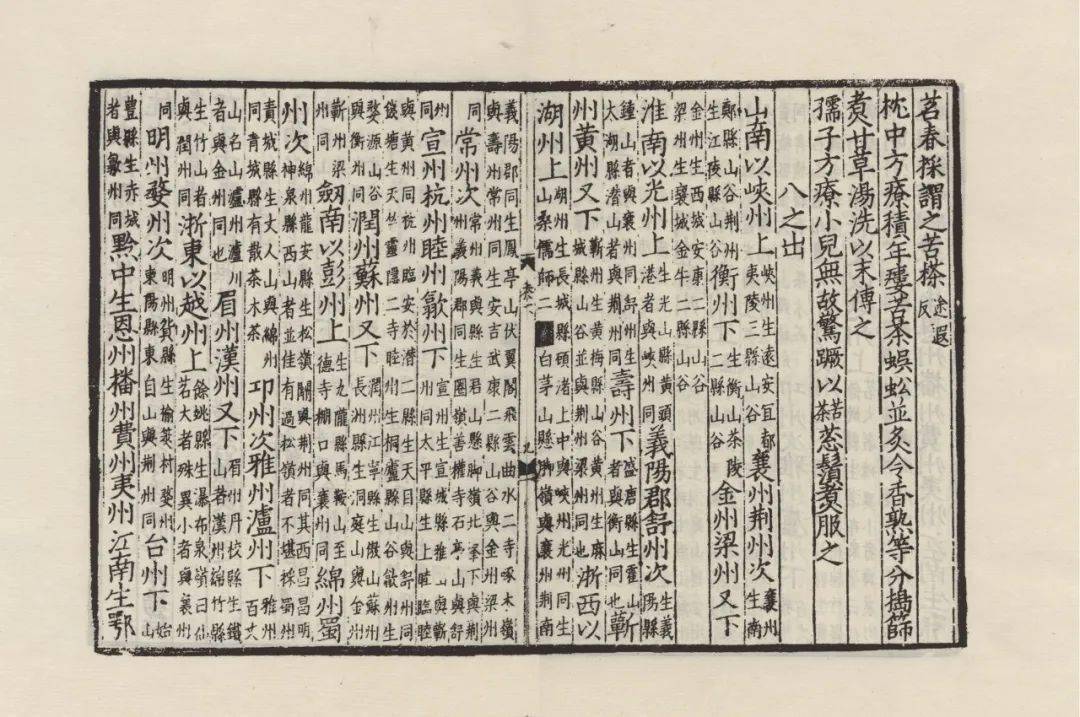 茗春採謂之苦搽途遐反
枕中方療積年瘻苦茶蜈蚣並炙令香熟等分擣篩
煑甘草湯洗以末傅之
孺子方療小兒無故驚蹶以苦茶葱鬚煑服之
八之出
山南以峽州上峽州生遠安宜都夷陵三縣山谷襄州荊州次襄州生南
鄭縣山谷荊州生江陵縣山谷衡州下生衡山茶陵二縣山谷金州梁州又下
金州生西城安康二縣山谷梁州生襄城金牛二縣山谷
淮南以光州上生光山縣黃頭港者與峽州同義陽郡舒州次生義陽縣
鍾山者與襄州同舒州生太湖縣潛山者與荊州同壽州下盛唐縣生霍山者與衡山同也蘄
州黃州又下蘄州生黃梅縣山谷黃州生麻城縣山谷並與荊州梁州同也浙西以
湖州上湖州生長城縣顧渚上中與峽州光州同生山桑儒師二白茅山懸腳嶺與襄州荊南
義陽郡同生鳳亭山伏翼閣飛雲曲水二寺啄木嶺與壽州常州同生安吉武康二縣山谷與金州梁州
同常州次常州義興縣生君山懸腳嶺北峯下與荊州義陽郡同生圈嶺善權寺石亭山與舒
州同宣州杭州睦州歙州下宣州生宣城縣雅山與蘄州同太平縣生上睦臨睦
與黃州同杭州臨安於潛二縣生天目山與舒州同錢塘生天竺靈隱二寺睦州生桐廬縣山谷歙州生
婺源山谷與衡州同潤州蘇州又下潤州江寧縣生傲山蘇州長洲縣生洞庭山與金州
蘄州梁州同劒南以彭州上生九隴縣馬鞍山至德寺棚口與襄州同綿州蜀
州次綿州龍安縣生松嶺關與荊州同其西昌昌明神泉縣西山者並佳有過松嶺者不堪採蜀州
責城縣生大人山與綿州同青城縣有散茶木茶邛州次雅州瀘州下雅州百丈
山名山瀘州瀘川者與金州同也眉州漢州又下眉州丹校縣生鐵山者漢州綿竹縣
生竹山者與潤州同浙東以越州上餘姚縣生瀑布泉嶺曰仙茗大者殊異小者與襄州
同明州婺州次明州貿縣生榆莢村婺州東陽縣東自山與荊州同台州下始山
豐縣生赤城者與歙州同黔中生恩州播州費州夷州江南生鄂